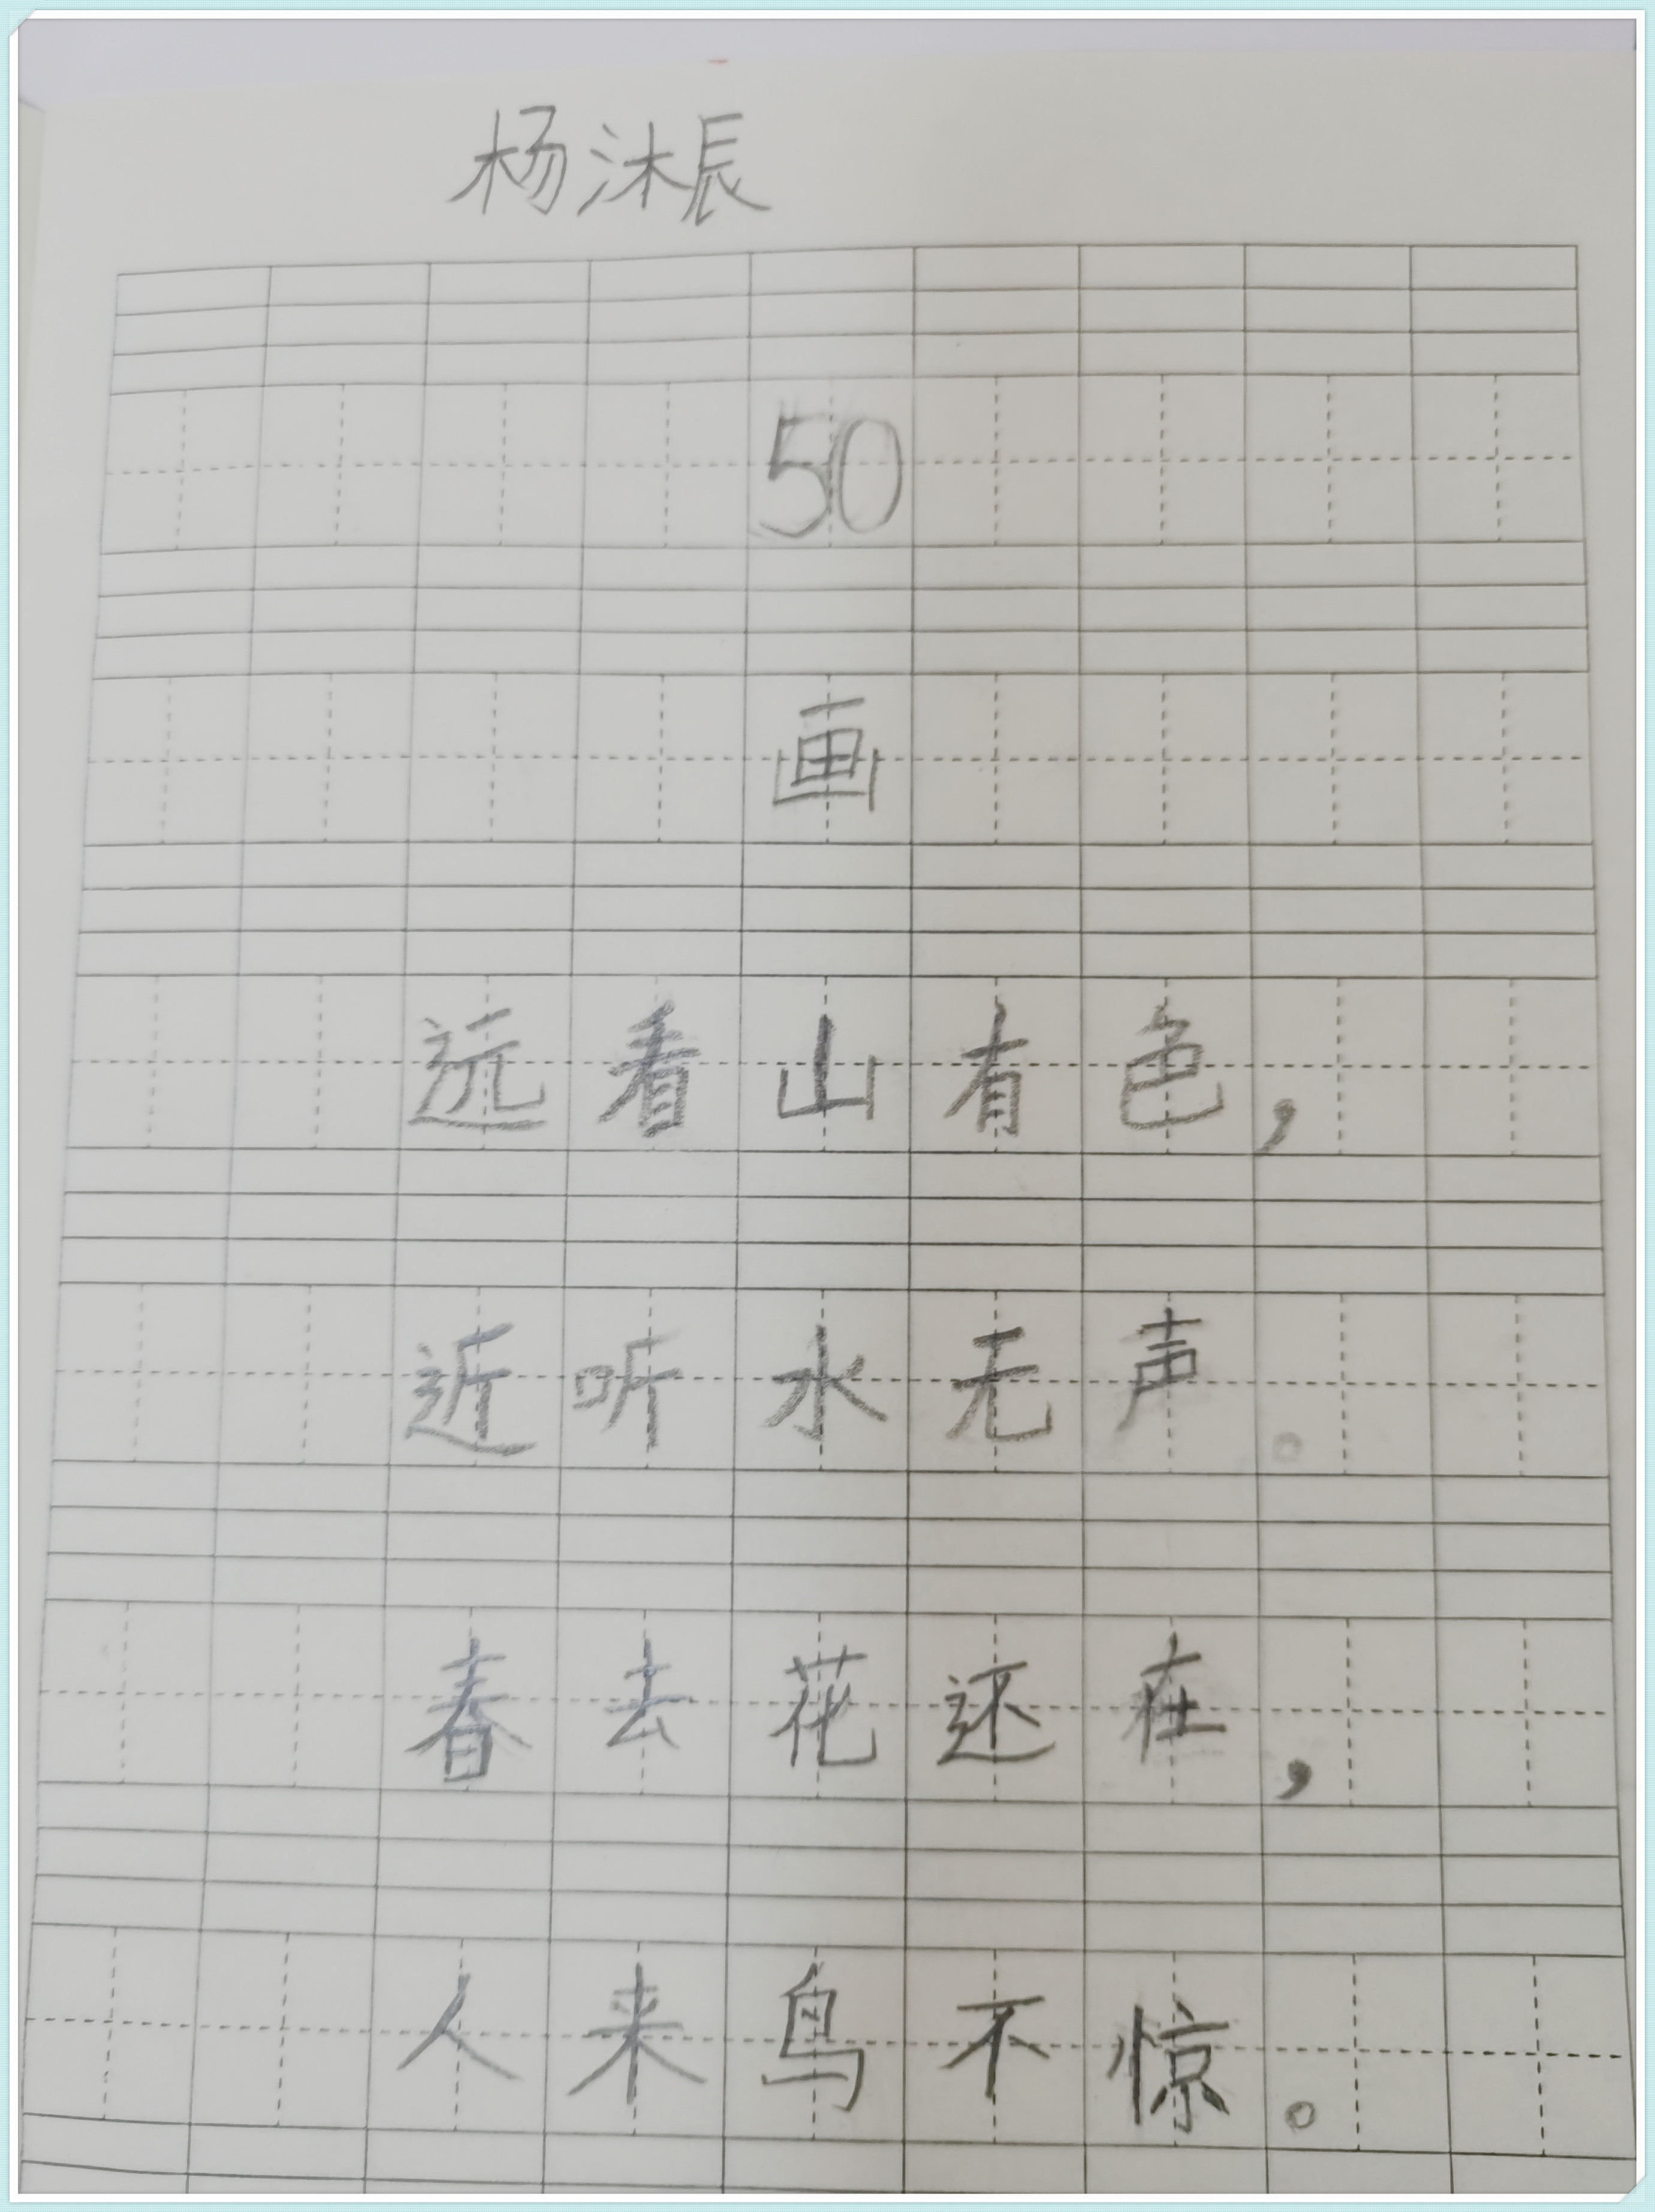 杨沐辰
50
画
远看山有色，
近听水无声。
春去花还在，
人来鸟不惊。